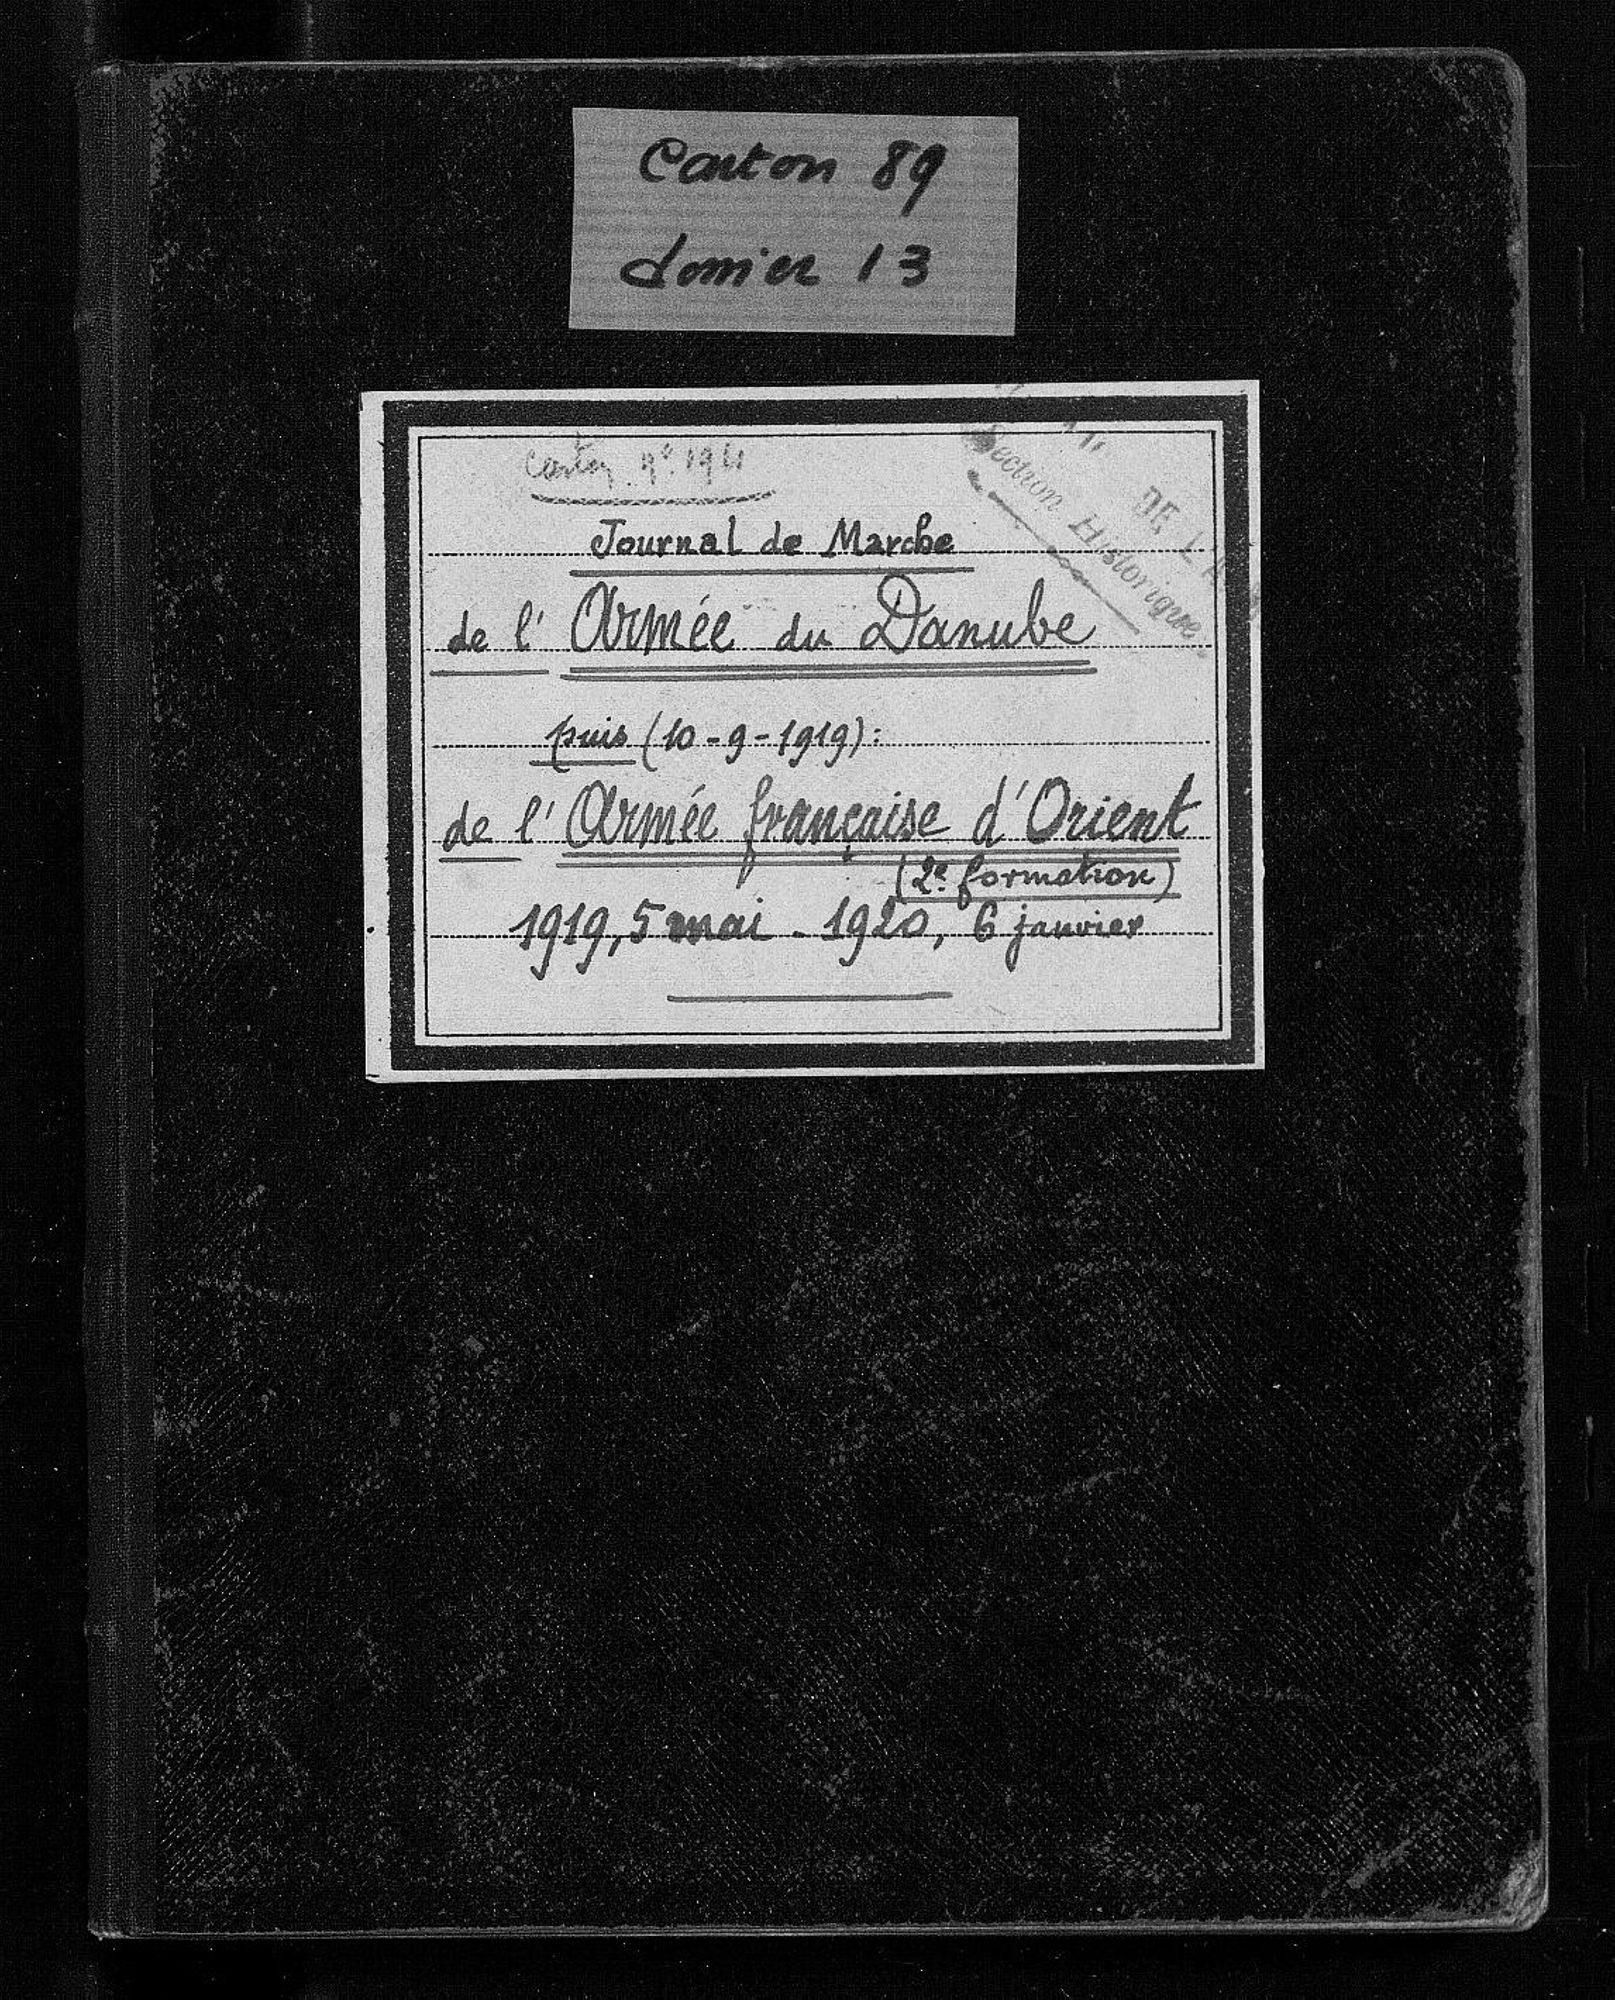 Carton 89
dossier 13
Carton nº 194
Section Historique
DE L'A
Journal de Marche
de l' Armée du Danube
puis (10-9-1919):
de l' Armée française d'Orient
(2e formation)
1919, 5 mai - 1920, 6 janvier